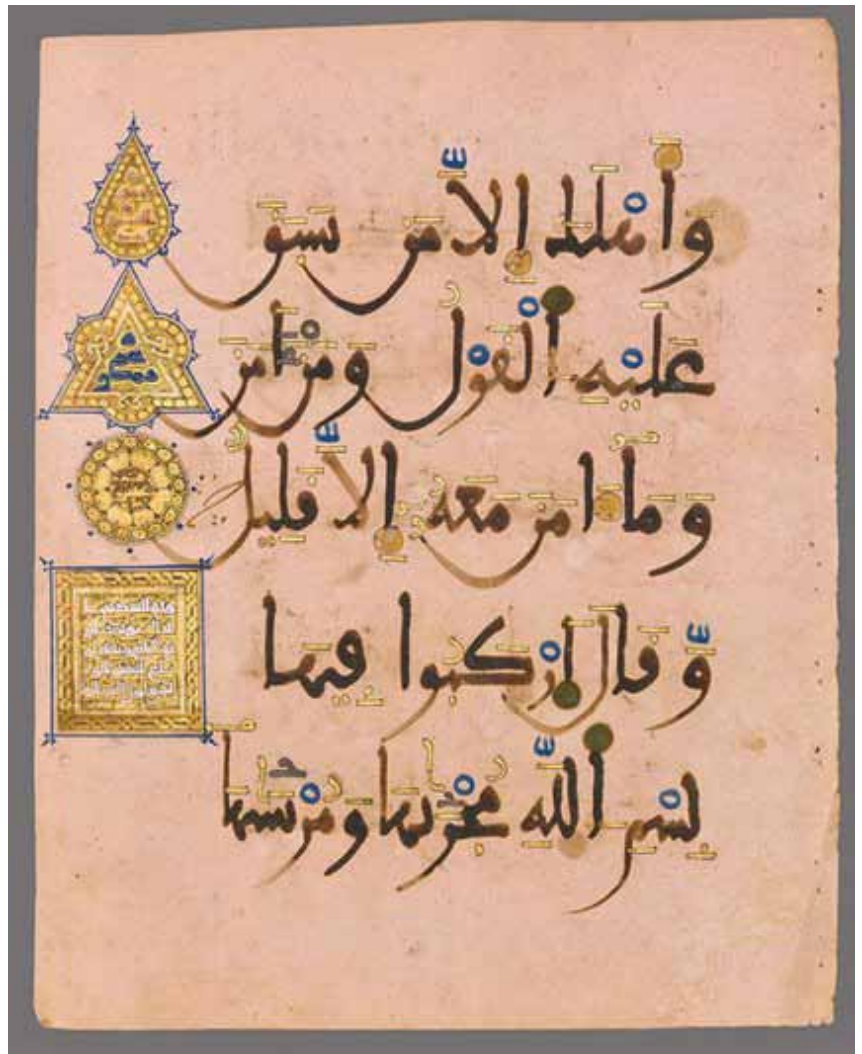 وَأَهْلَكَ إِلَّا مَن سَبَقَ
عَلَيْهِ ٱلْقَوْلُ وَمَنْ ءَامَنَ
وَمَا ءَامَنَ مَعَهُ إِلَّا قَلِيلٌ
وَّقَالَ ٱرْكَبُوا فِيهَا
بِسْمِ ٱللَّهِ مُجْرٜىٰهَا وَمُرْسَىٰهَا